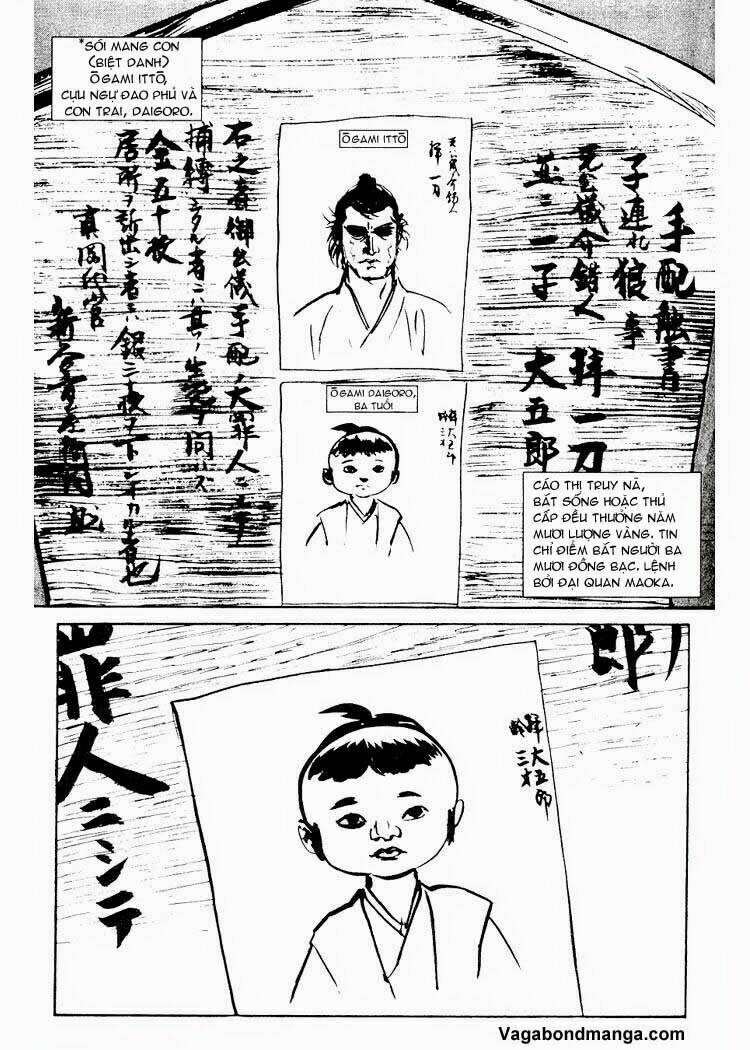 *SÓI MANG CON
(BIỆT DANH)
ŌGAMI ITTŌ,
CỰU NGỰ ĐAO PHỦ VÀ
CON TRAI, DAIGORO.
ŌGAMI ITTŌ
手配触書
子連れ狼事
公儀介錯人 拝一刀
並ニ一子 大五郎
ŌGAMI DAIGORO,
BA TUỔI
拝大五郎
齢三才
右之者御公儀手配ノ大罪人ニシテ
捕縛シタル者ニハ其ノ生死ヲ問ハズ
金五十枚
居所ヲ訴出シ者ニハ銀三十枚ヲ下シオカル者也
真岡代官
CÁO THỊ TRUY NÃ,
BẮT SỐNG HOẶC THỦ
CẤP ĐỀU THƯỞNG NĂM
MƯƠI LƯỢNG VÀNG. TIN
CHỈ ĐIỂM BẮT NGƯỜI BA
MƯƠI ĐỒNG BẠC. LỆNH
BỞI ĐẠI QUAN MAOKA.
郎
拝大五郎
齢三才
罪人ニシテ
Vagabondmanga.com